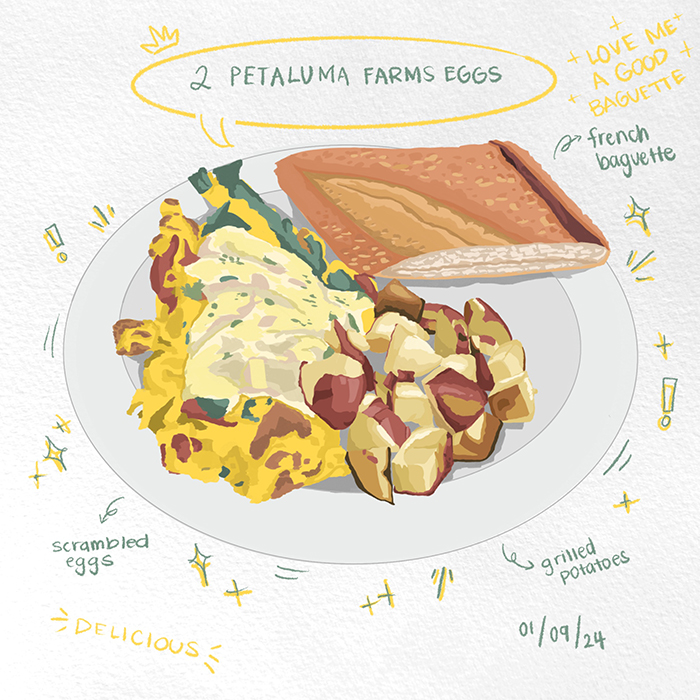 2 PETALUMA FARMS EGGS
LOVE ME
A GOOD
BAGUETTE
french
baguette
scrambled
eggs
grilled
potatoes
DELICIOUS
01/09/24